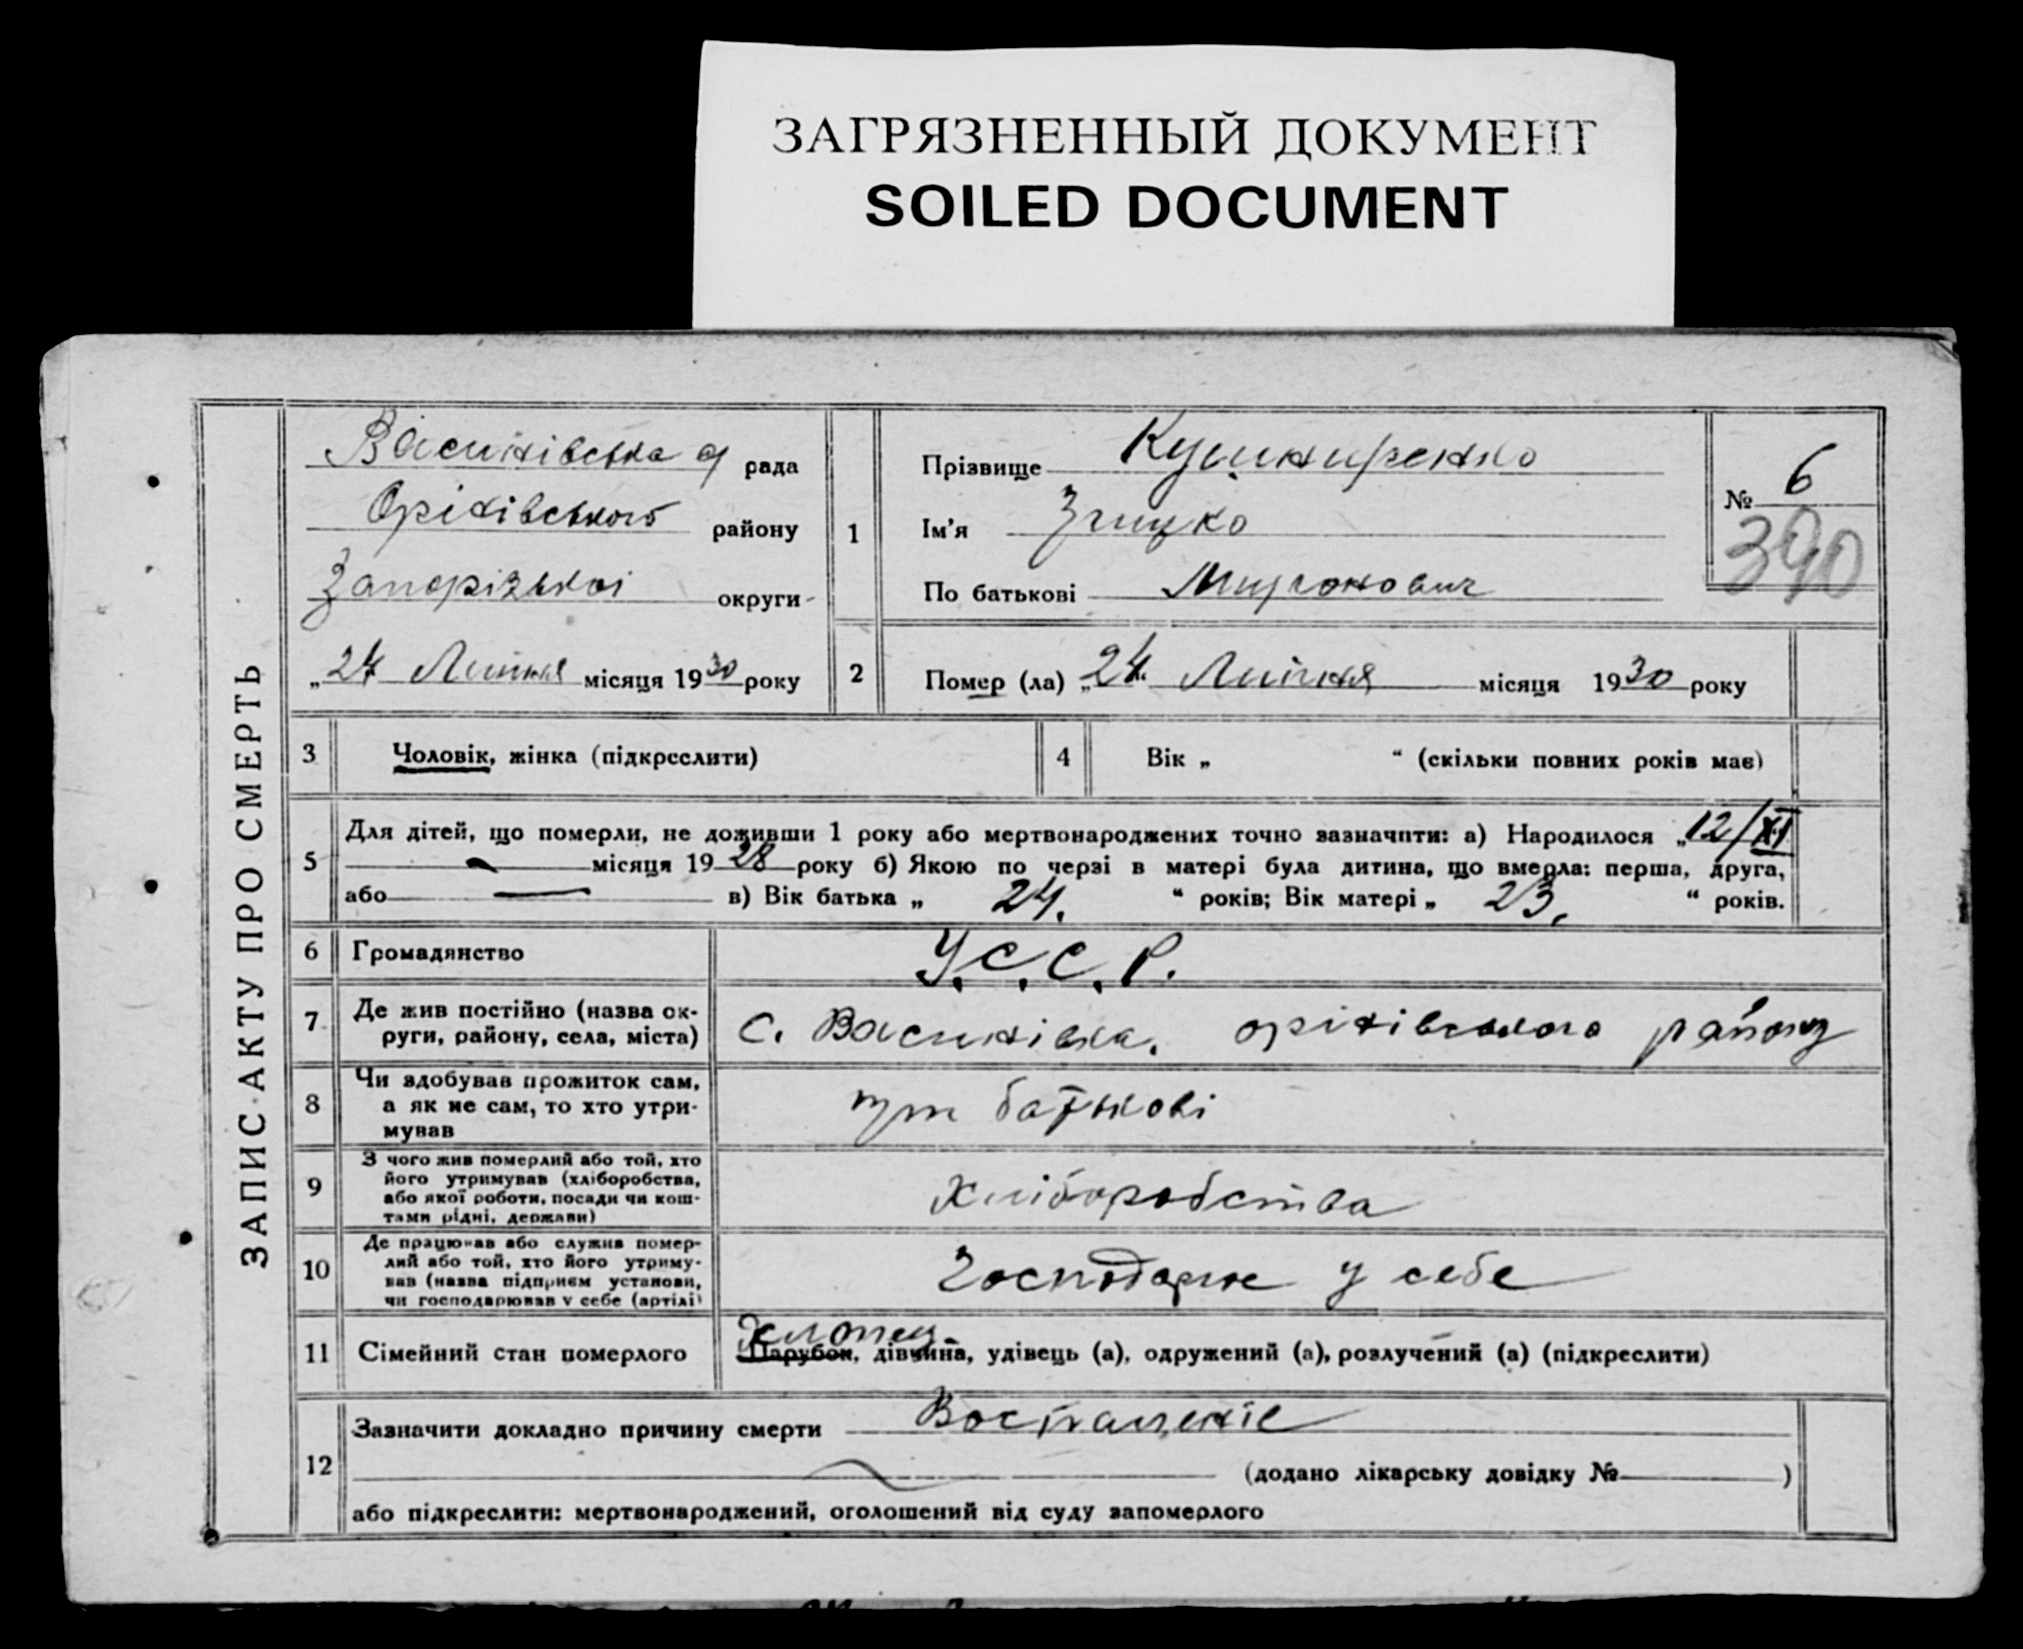 ЗАГРЯЗНЕННЫЙ ДОКУМЕНТ
SOILED DOCUMENT
ЗАПИС АКТУ ПРО СМЕРТЬ
Васинівська рада
Оріхівського району
Запорізької округи
„24 Липня місяця 1930 року
1
Прізвище Кушниренко
Ім'я Грицко
По батькові Миронович
№ 6
390
2 Помер (ла) „24" Липня місяця 1930 року
3 Чоловік, жінка (підкреслити)
4 Вік „ “ (скільки повних років має)
5 Для дітей, що померли, не доживши 1 року або мертвонароджених точно зазначити: а) Народилося „12/XI
місяця 1928 року б) Якою по черзі в матері була дитина, що вмерла: перша, друга,
або — в) Вік батька „ 24. “ років; Вік матері „ 23. “ років.
6 Громадянство У.С.С.Р.
7 Де жив постійно (назва ок-
руги, району, села, міста) с. Васинівка. оріхівського району
8 Чи здобував прожиток сам,
а як не сам, то хто утри-
мував при батькові
9 З чого жив померлий або той, хто
його утримував (хліборобства,
або якої роботи, посади чи кош-
тами рідні, держави) хліборобства
10 Де працював або служив помер-
лий або той, хто його утриму-
вав (назва підприєм установи,
чи господарював у себе (артілі) Господарює у себе
11 Сімейний стан померлого Хлопец
Парубок, дівчина, удівець (а), одружений (а), розлучений (а) (підкреслити)
12 Зазначити докладно причину смерти Воспаленіе
(додано лікарську довідку № )
або підкреслити: мертвонароджений, оголошений від суду запомерлого